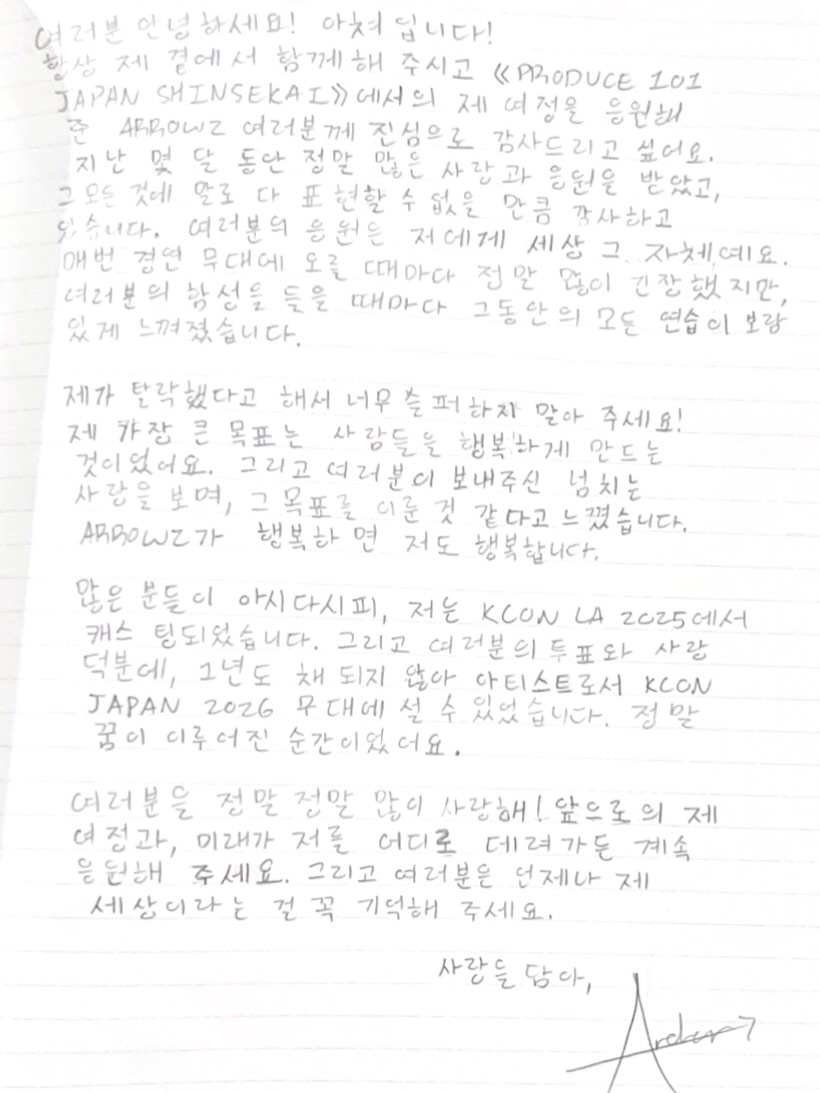 여러분 안녕하세요! 아쳐 입니다!
항상 제 곁에서 함께해 주시고 《PRODUCE 101
JAPAN SHINSEKAI》에서의 제 여정을 응원해
준 ARROWZ 여러분께 진심으로 감사드리고 싶어요.
지난 몇 달 동안 정말 많은 사랑과 응원을 받았고,
그 모든 것에 말로 다 표현할 수 없을 만큼 감사하고
있습니다. 여러분의 응원은 저에게 세상 그 자체예요.
매번 경연 무대에 오를 때마다 정말 많이 긴장했지만,
여러분의 함성을 들을 때마다 그동안의 모든 연습이 보람
있게 느껴졌습니다.
제가 탈락했다고 해서 너무 슬퍼하지 말아 주세요!
제 가장 큰 목표는 사람들을 행복하게 만드는
것이었어요. 그리고 여러분이 보내주신 넘치는
사랑을 보며, 그 목표를 이룬 것 같다고 느꼈습니다.
ARROWZ가 행복하면 저도 행복합니다.
많은 분들이 아시다시피, 저는 KCON LA 2025에서
캐스팅되었습니다. 그리고 여러분의 투표와 사랑
덕분에, 1년도 채 되지 않아 아티스트로서 KCON
JAPAN 2026 무대에 설 수 있었습니다. 정말
꿈이 이루어진 순간이었어요.
여러분을 정말 정말 많이 사랑해! 앞으로의 제
여정과, 미래가 저를 어디로 데려가든 계속
응원해 주세요. 그리고 여러분은 언제나 제
세상이라는 걸 꼭 기억해 주세요.
사랑을 담아,